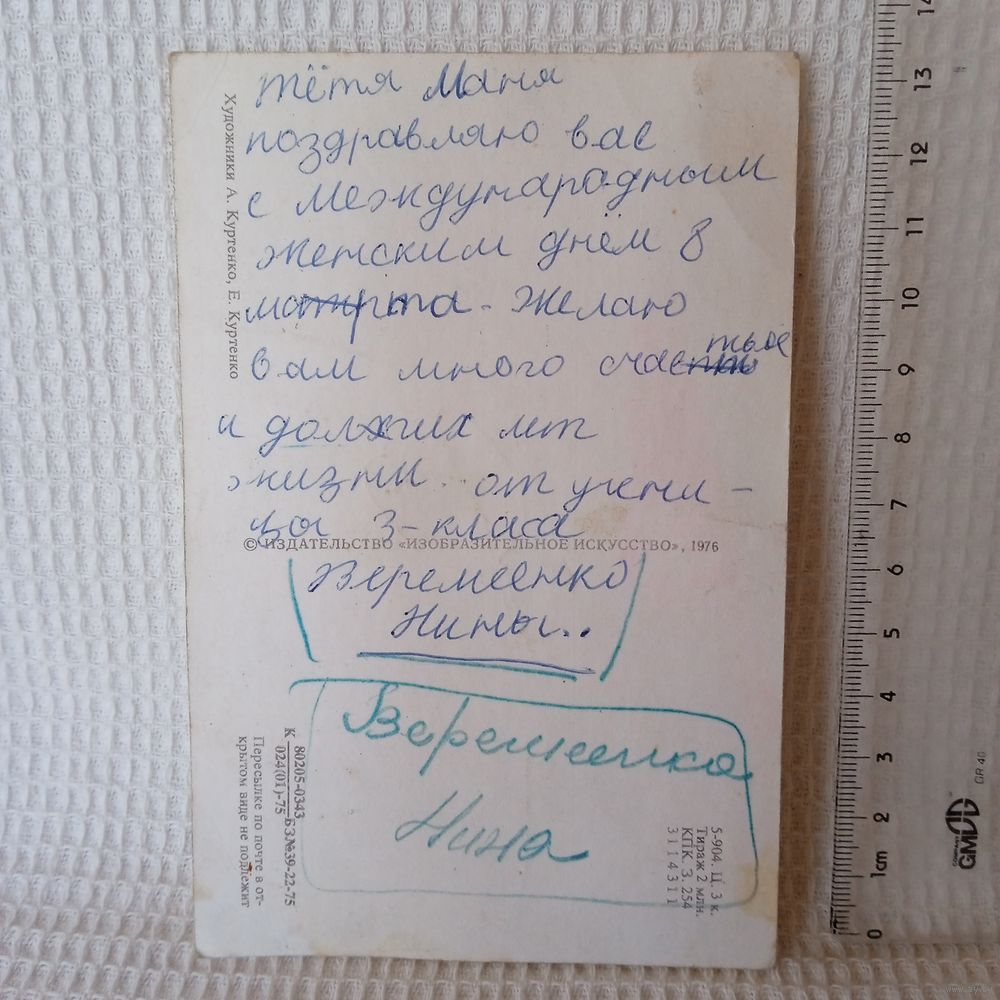 тётя Маня
поздравляю вас
с Международным
женским днём 8
марта. Желаю
вам много счастья
тьяе
и долгих лет
жизни. от учени-
цы 3-класа
Веремеенко
Нины..
Веремеенко
Нина
Художники А. Куртенко, Е. Куртенко
© ИЗДАТЕЛЬСТВО «ИЗОБРАЗИТЕЛЬНОЕ ИСКУССТВО», 1976
К 80205-0343 БЗ№39-22-75
024(01)-75
Пересылке по почте в от-
крытом виде не подлежит
5-904. Ц. 3 к.
Тираж 2 млн.
КПК. З. 254
3114311
14
13
12
11
10
9
8
7
6
5
4
3
2
1cm
0
GR 40
COMPANY GMDG